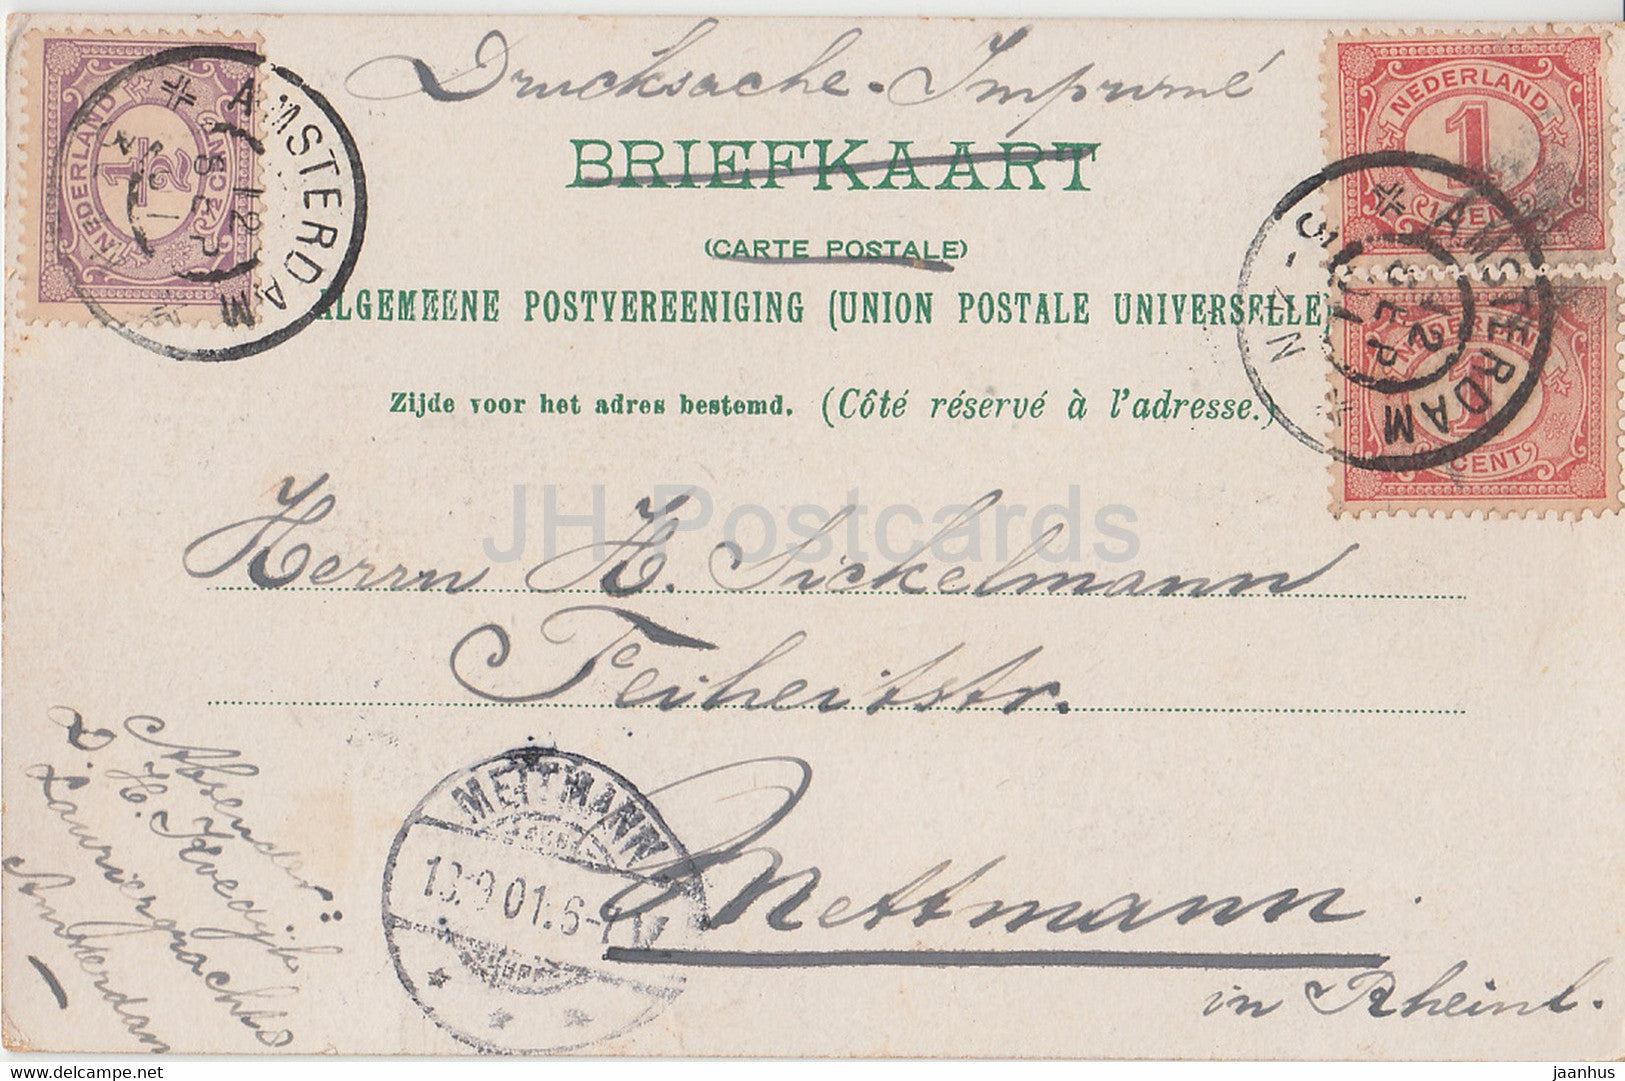 Drucksache - Imprimé
BRIEFKAART
(CARTE POSTALE)
ALGEMEENE POSTVEREENIGING (UNION POSTALE UNIVERSELLE)
Zijde voor het adres bestemd. (Côté réservé à l'adresse.)
NEDERLAND
1/2
AMSTERDAM
12 SEP
NEDERLAND
1
1 CENT
NEDERLAND
1
CENT
AMSTERDAM
12 SEP
01
3-4N
JH Postcards
Herrn H. Sickelmann
Feiheitstr.
Mettmann
in Rheinl.
METTMANN
13.9.01.6-7N
Absender:
H. Kwedijk
Lauriergracht
Amsterdam
delcampe.net
jaanhus